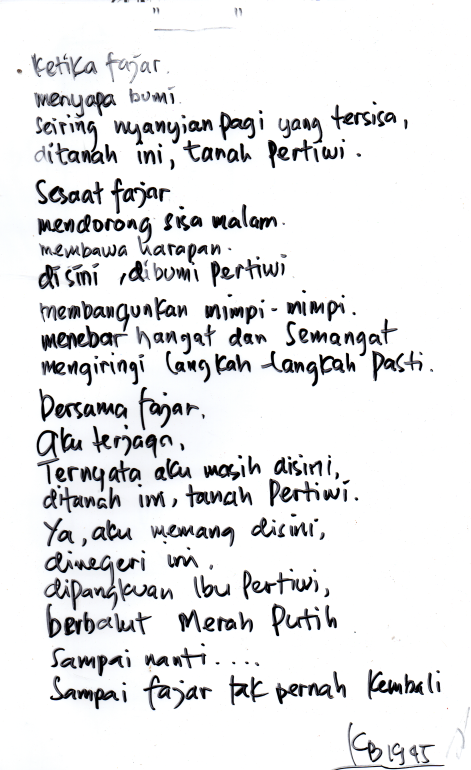 " "
. Ketika fajar.
menyapa bumi.
seiring nyanyian pagi yang tersisa,
ditanah ini, tanah Pertiwi.
Sesaat fajar
mendorong sisa malam.
membawa harapan.
disini, dibumi Pertiwi
membangunkan mimpi-mimpi.
menebar hangat dan Semangat
mengiringi langkah-langkah pasti.
bersama fajar,
aku terjaga,
Ternyata aku masih disini,
ditanah ini, tanah Pertiwi.
Ya, aku memang disini,
dinegeri ini,
dipangkuan Ibu Pertiwi,
berbalut Merah Putih
Sampai nanti....
Sampai fajar tak pernah Kembali
1945